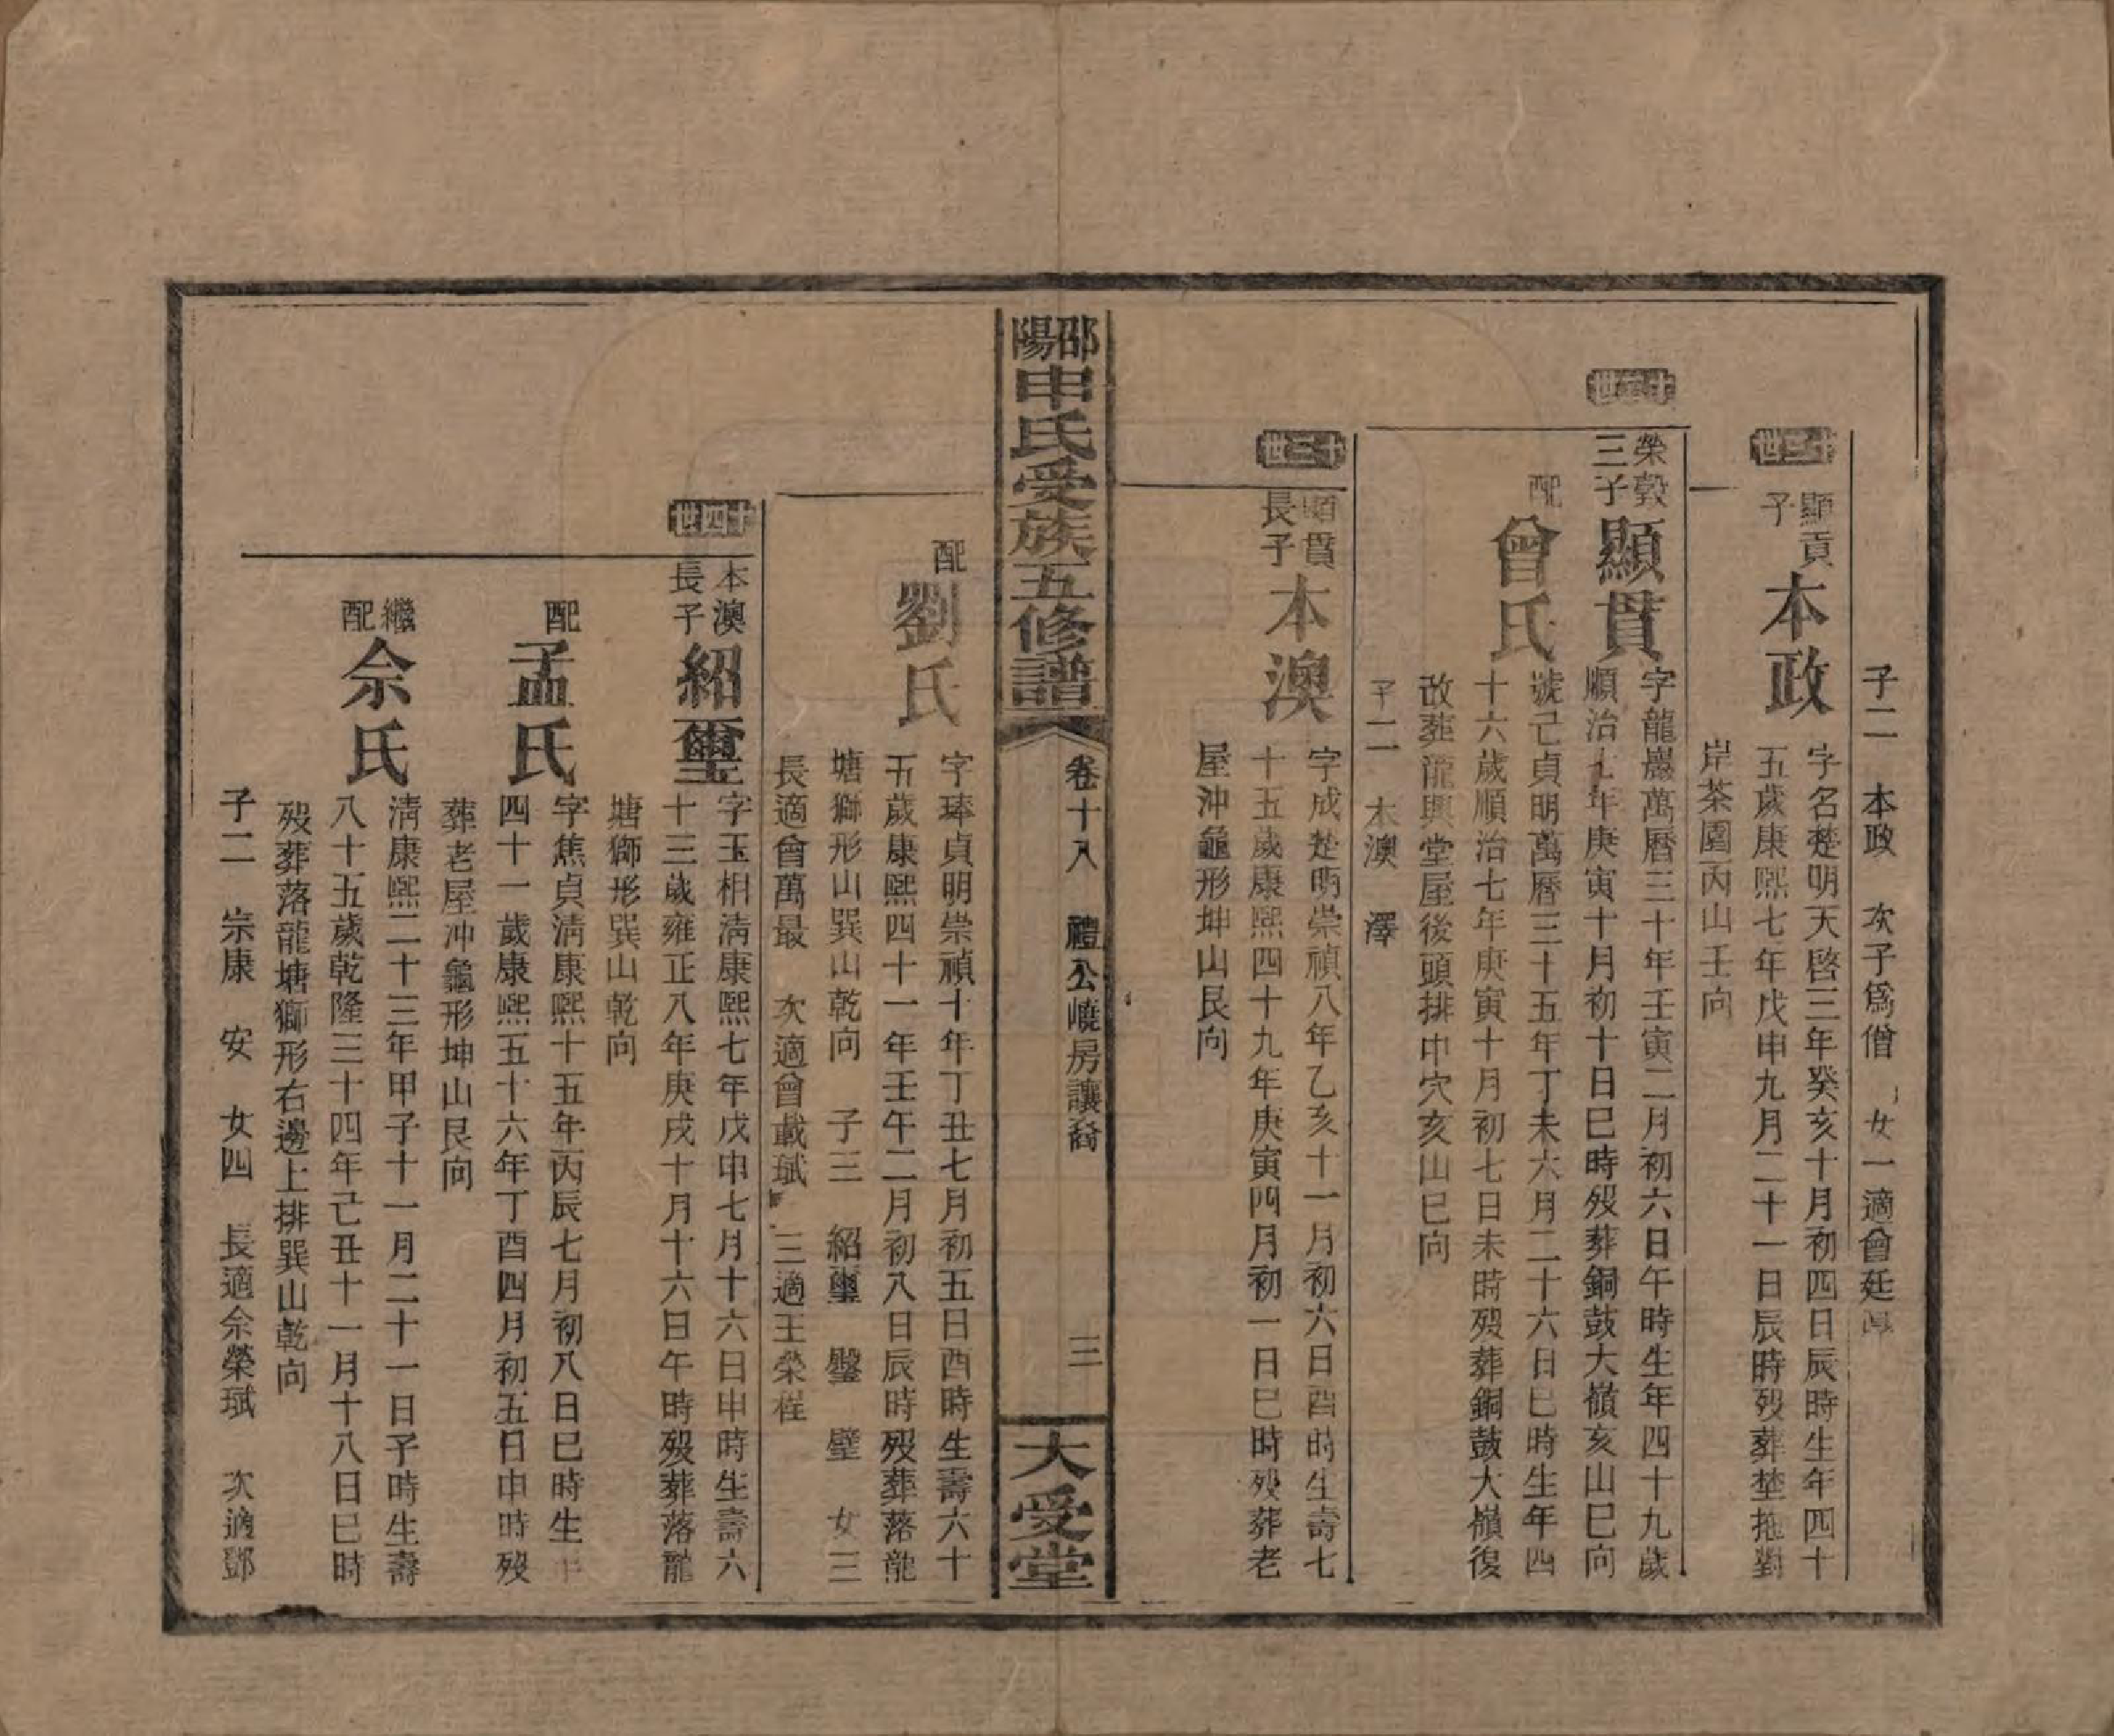 子二　本政　次子爲僧　女一適曾廷
十三世
顯貢
子
本政
字名楚明天啓三年癸亥十月初四日辰時生年四十
五歲康熙七年戊申九月二十一日辰時歿葬埜拖對
岸茶園丙山壬向
十二世
榮穀
三子
顯貫
字龍巖萬曆三十年壬寅二月初六日午時生年四十九歲
順治七年庚寅十月初十日巳時歿葬銅鼓大嶺亥山巳向
配
曾氏
號己貞明萬曆三十五年丁未六月二十六日巳時生年四
十六歲順治七年庚寅十月初七日未時歿葬銅鼓大嶺復
改葬龍興堂屋後頭排中穴亥山巳向
子二　本澳　澤
十三世
顯貫
長子
本澳
字成楚明崇禎八年乙亥十一月初六日酉時生壽七
十五歲康熙四十九年庚寅四月初一日巳時歿葬老
屋沖龜形坤山艮向
邵陽申氏受族五修譜
卷十八　禮公嶢房讓裔
三
大受堂
配
劉氏
字琫貞明崇禎十年丁丑七月初五日酉時生壽六十
五歲康熙四十一年壬午二月初八日辰時歿葬落龍
塘獅形山巽山乾向　子三　紹璽　鑿　壁　女三
長適曾萬最　次適曾載珷　三適王榮程
十四世
本澳
長子
紹璽
字玉相淸康熙七年戊申七月十六日申時生壽六
十三歲雍正八年庚戌十月十六日午時歿葬落龍
塘獅形巽山乾向
配
孟氏
字焦貞淸康熙十五年丙辰七月初八日巳時生年
四十一歲康熙五十六年丁酉四月初五日申時歿
葬老屋沖龜形坤山艮向
繼
配
佘氏
淸康熙二十三年甲子十一月二十一日子時生壽
八十五歲乾隆三十四年己丑十一月十八日巳時
歿葬落龍塘獅形右邊上排巽山乾向
子二　崇康　安　女四　長適佘榮珷　次適鄧